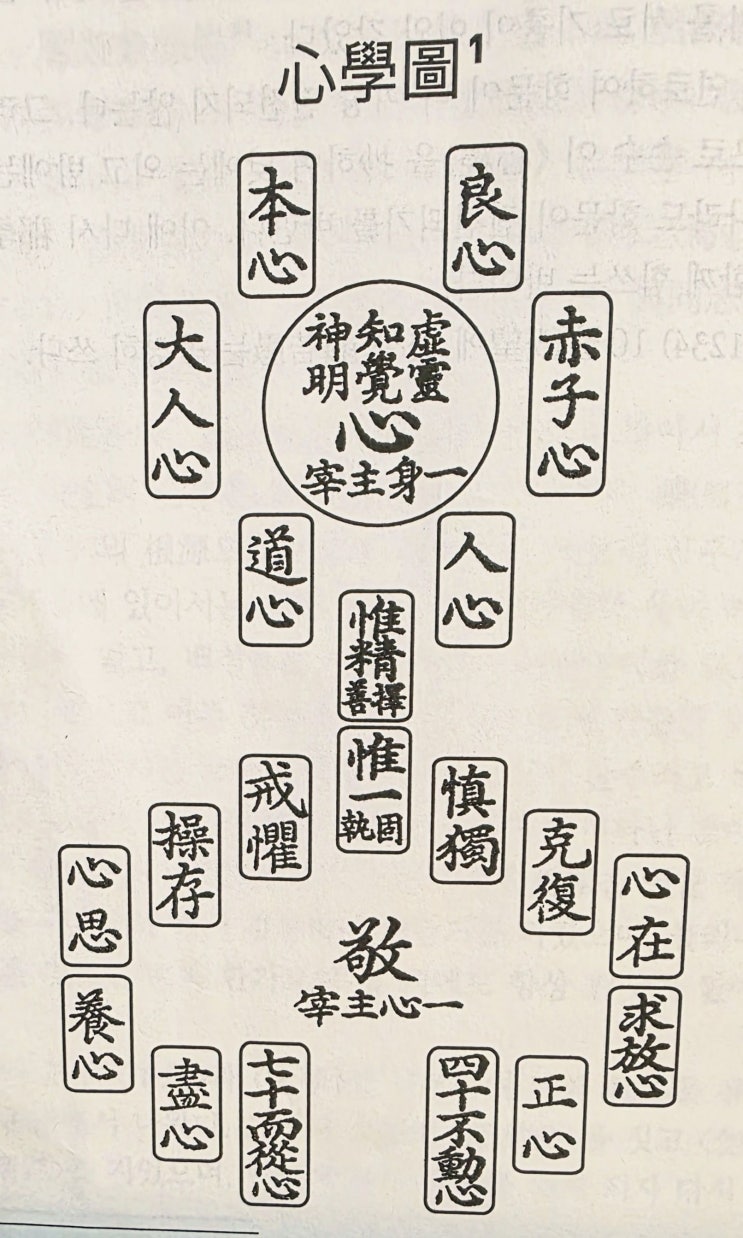 心學圖1
良心
本心
赤子心
虛靈
知覺
神明
心
一身主宰
大人心
人心
道心
惟精
擇善
惟一
固執
愼獨
戒懼
克復
操存
心在
心思
敬
一心主宰
求放心
養心
正心
盡心
四十不動心
七十而從心